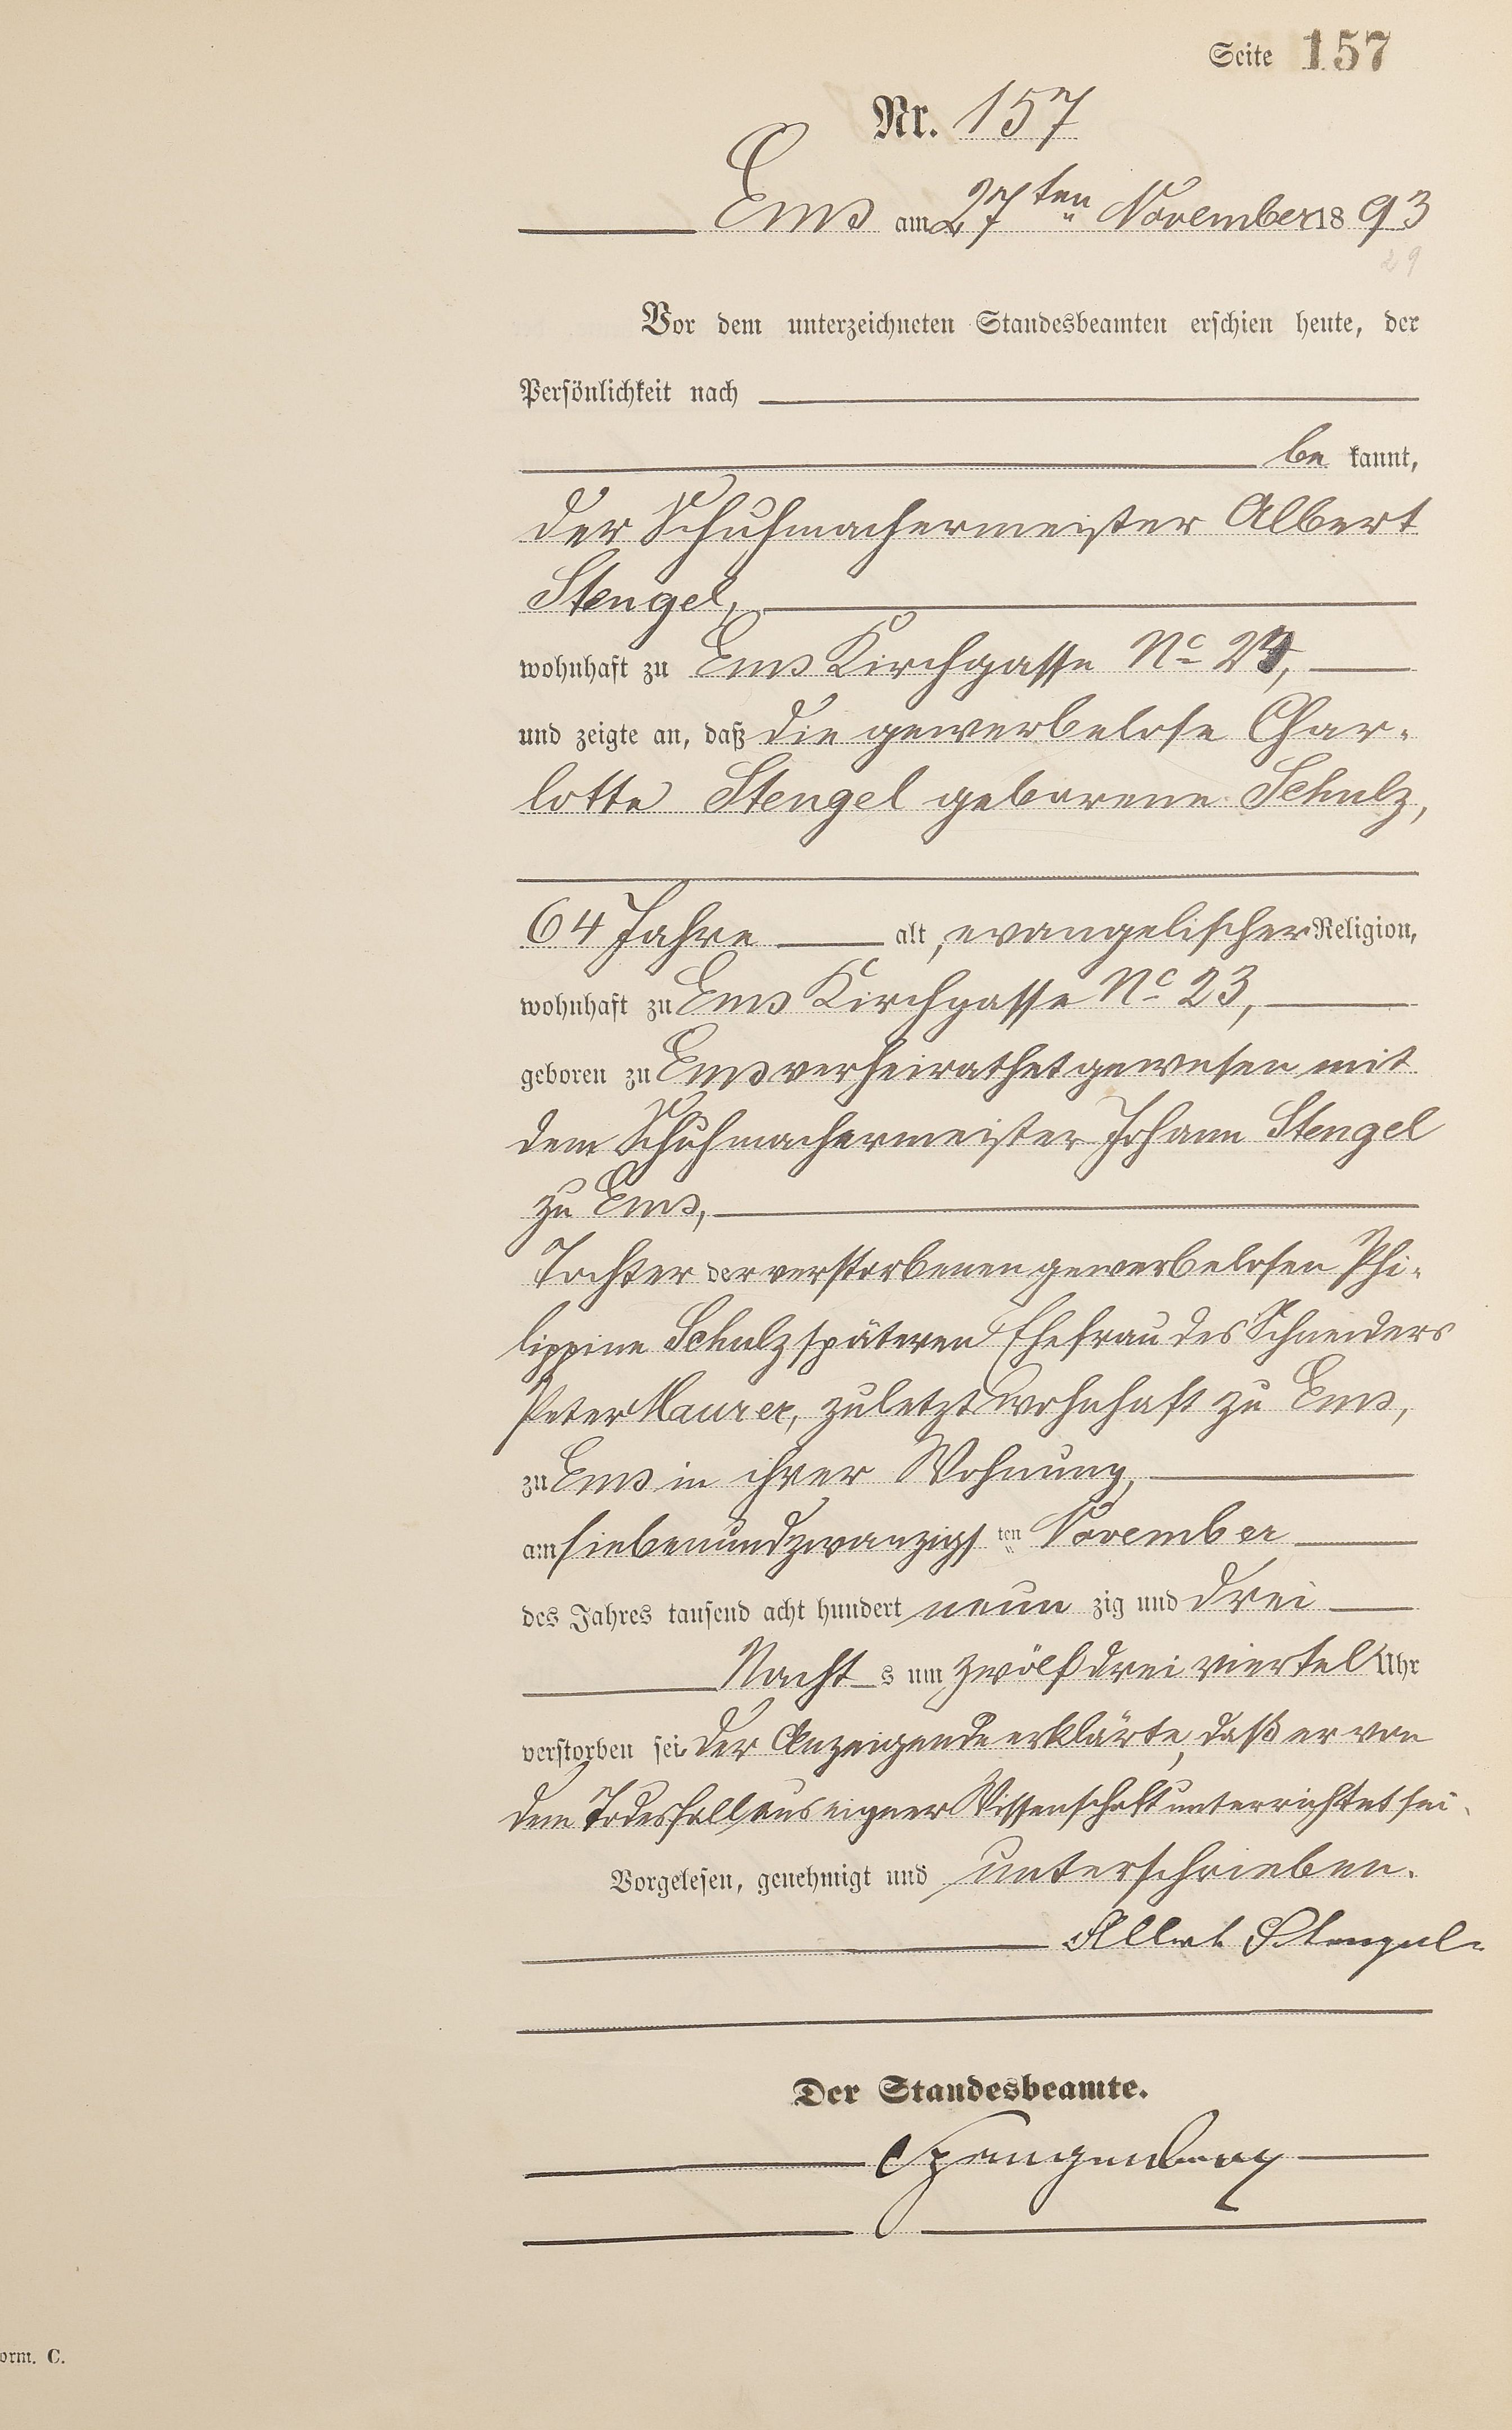 Seite 157
Nr. 157
Ems am 27ten November 1893
29
Vor dem unterzeichneten Standesbeamten erschien heute, der
Persönlichkeit nach
be kannt,
der Schuhmachermeister Albert
Stengel,
wohnhaft zu Ems Kirchgasse No
und zeigte an, daß die gewerbelose Char-
lotte Stengel geborene Schulz,
64 Jahre alt, evangelischer Religion,
wohnhaft zu Ems Kirchgasse No 23,
geboren zu Ems verheirathet gewesen mit
dem Schuhmachermeister Johann Stengel
zu Ems,
Tochter der verstorbenen gewerbelosen Phi-
lippine Schulz späteren Ehefrau des Schneiders
Peter Maurer, zuletzt wohnhaft zu Ems,
zu Ems in ihrer Wohnung,
am siebenundzwanzigsten November
des Jahres tausend acht hundert neun zig und drei
Nachts um zwölf drei viertel Uhr
verstorben sei. Der Anzeigende erklärte, daß er von
dem Todesfall aus eigner Wissenschaft unterrichtet sei.
Vorgelesen, genehmigt und unterschrieben.
Albert Stengel.
Der Standesbeamte.
Spangenberg
orm. C.